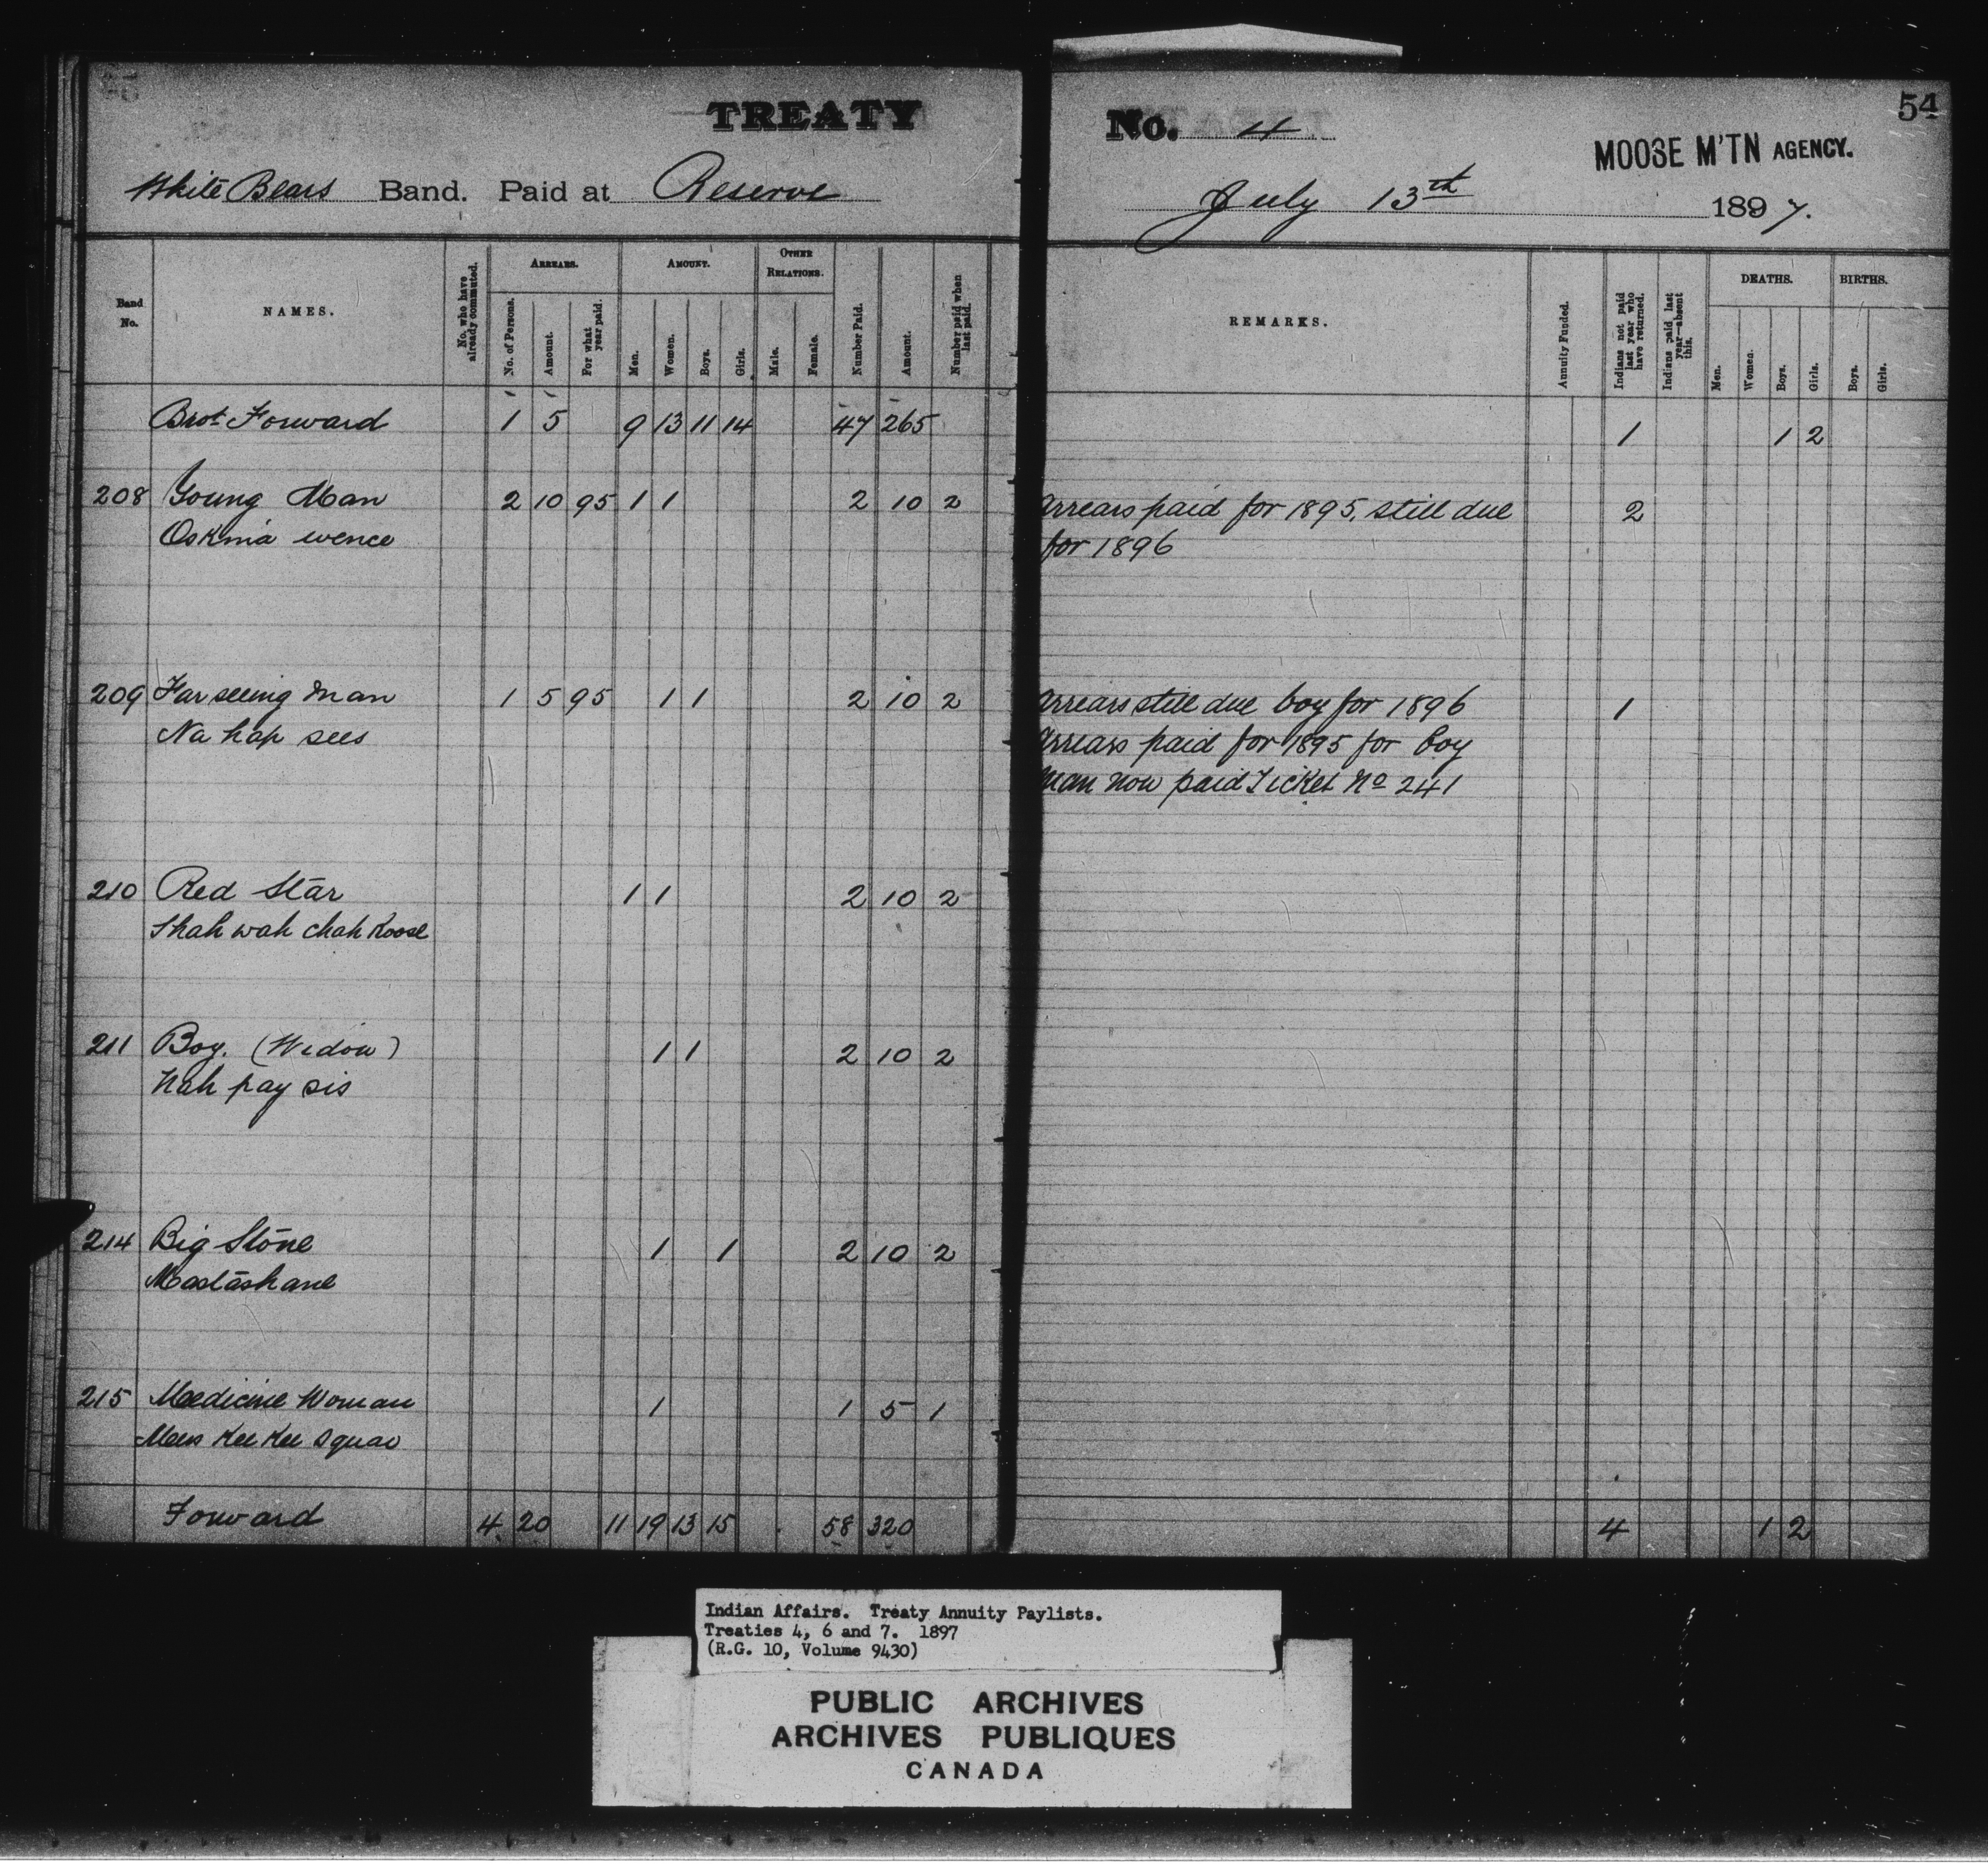 TREATY No. 4
54
MOOSE M'TN AGENCY.
White Bears Band. Paid at Reserve
July 13th 1897.
Band No.
NAMES.
No. who have already commuted.
ARREARS.
No. of Persons.
Amount.
For what year paid.
AMOUNT.
Men.
Women.
Boys.
Girls.
OTHER RELATIONS.
Male.
Female.
Number Paid.
Amount.
Number paid when last paid.
REMARKS.
Annuity Funded.
Indians not paid last year who have returned.
Indians paid last year—absent this.
DEATHS.
Men.
Women.
Boys.
Girls.
BIRTHS.
Boys.
Girls.
Brot Forward 1 5 9 13 11 14 47 265 1 1 2
208 Young Man 2 10 95 1 1 2 10 2 Arrears paid for 1895, still due 2
Oskinia wence for 1896
209 Far seeing Man 1 5 95 1 1 2 10 2 Arrears still due boy for 1896 1
Na hap sees Arrears paid for 1895 for boy
Man now paid Ticket No 241
210 Red Star 1 1 2 10 2
Shah wah chah Koose
211 Boy. (Widow) 1 1 2 10 2
Nah pay sis
214 Big Stone 1 1 2 10 2
Mastashane
215 Medicine Woman 1 1 5 1
Mus Kee Kee Squaw
Forward 4 20 11 19 13 15 58 320 4 1 2
Indian Affairs. Treaty Annuity Paylists.
Treaties 4, 6 and 7. 1897
(R.G. 10, Volume 9430)
PUBLIC ARCHIVES
ARCHIVES PUBLIQUES
CANADA